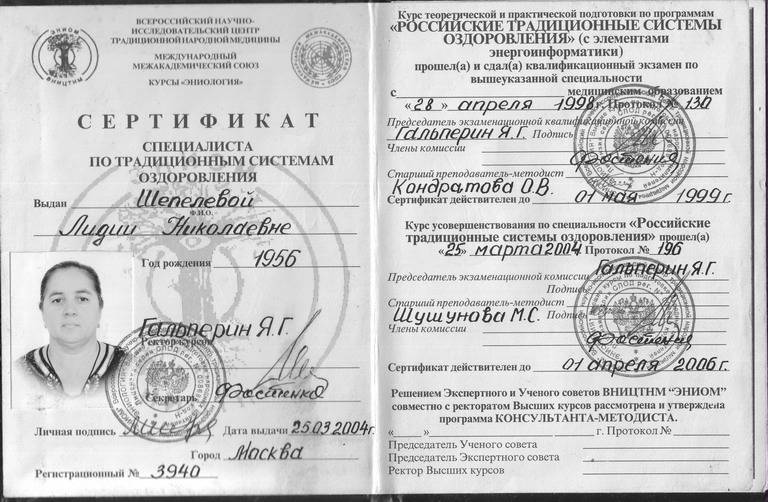 ВСЕРОССИЙСКИЙ НАУЧНО-
ИССЛЕДОВАТЕЛЬСКИЙ ЦЕНТР
ТРАДИЦИОННОЙ НАРОДНОЙ МЕДИЦИНЫ
МЕЖДУНАРОДНЫЙ
МЕЖАКАДЕМИЧЕСКИЙ СОЮЗ
КУРСЫ «ЭНИОЛОГИЯ»
ЭНИОМ
ВНИЦТНМ
СЕРТИФИКАТ
СПЕЦИАЛИСТА
ПО ТРАДИЦИОННЫМ СИСТЕМАМ
ОЗДОРОВЛЕНИЯ
Выдан Шепелевой
Ф.И.О.
Лидии Николаевне
Год рождения 1956
Гальперин Я.Г.
Ректор курсов
Секретарь Фостенко
Личная подпись Дата выдачи 25.03.2004г.
Город Москва
Регистрационный № 3940
Курс теоретической и практической подготовки по программам
«РОССИЙСКИЕ ТРАДИЦИОННЫЕ СИСТЕМЫ
ОЗДОРОВЛЕНИЯ» (с элементами
энергоинформатики)
прошел(а) и сдал(а) квалификационный экзамен по
вышеуказанной специальности
с медицинским образованием
«28» апреля 1998 г. Протокол № 130
Председатель экзаменационной квалификационной комиссии
Гальперин Я.Г. Подпись
Члены комиссии
Старший преподаватель-методист
Кондратова О.В.
Сертификат действителен до 01 мая 1999 г.
Курс усовершенствования по специальности «Российские
традиционные системы оздоровления» прошел(а)
«25» марта 2004 Протокол № 196
Председатель экзаменационной комиссии Гальперин Я.Г.
Старший преподаватель-методист Подпись
Шушунова М.С.
Члены комиссии
Сертификат действителен до 01 апреля 2006 г.
Решением Экспертного и Ученого советов ВНИЦТНМ "ЭНИОМ"
совместно с ректоратом Высших курсов рассмотрена и утверждена
программа КОНСУЛЬТАНТА-МЕТОДИСТА.
« » г. Протокол №
Председатель Ученого совета
Председатель Экспертного совета
Ректор Высших курсов